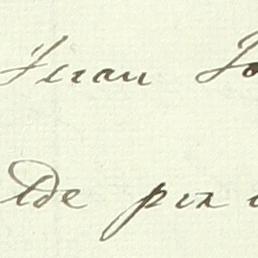 Jean Jo
De prix